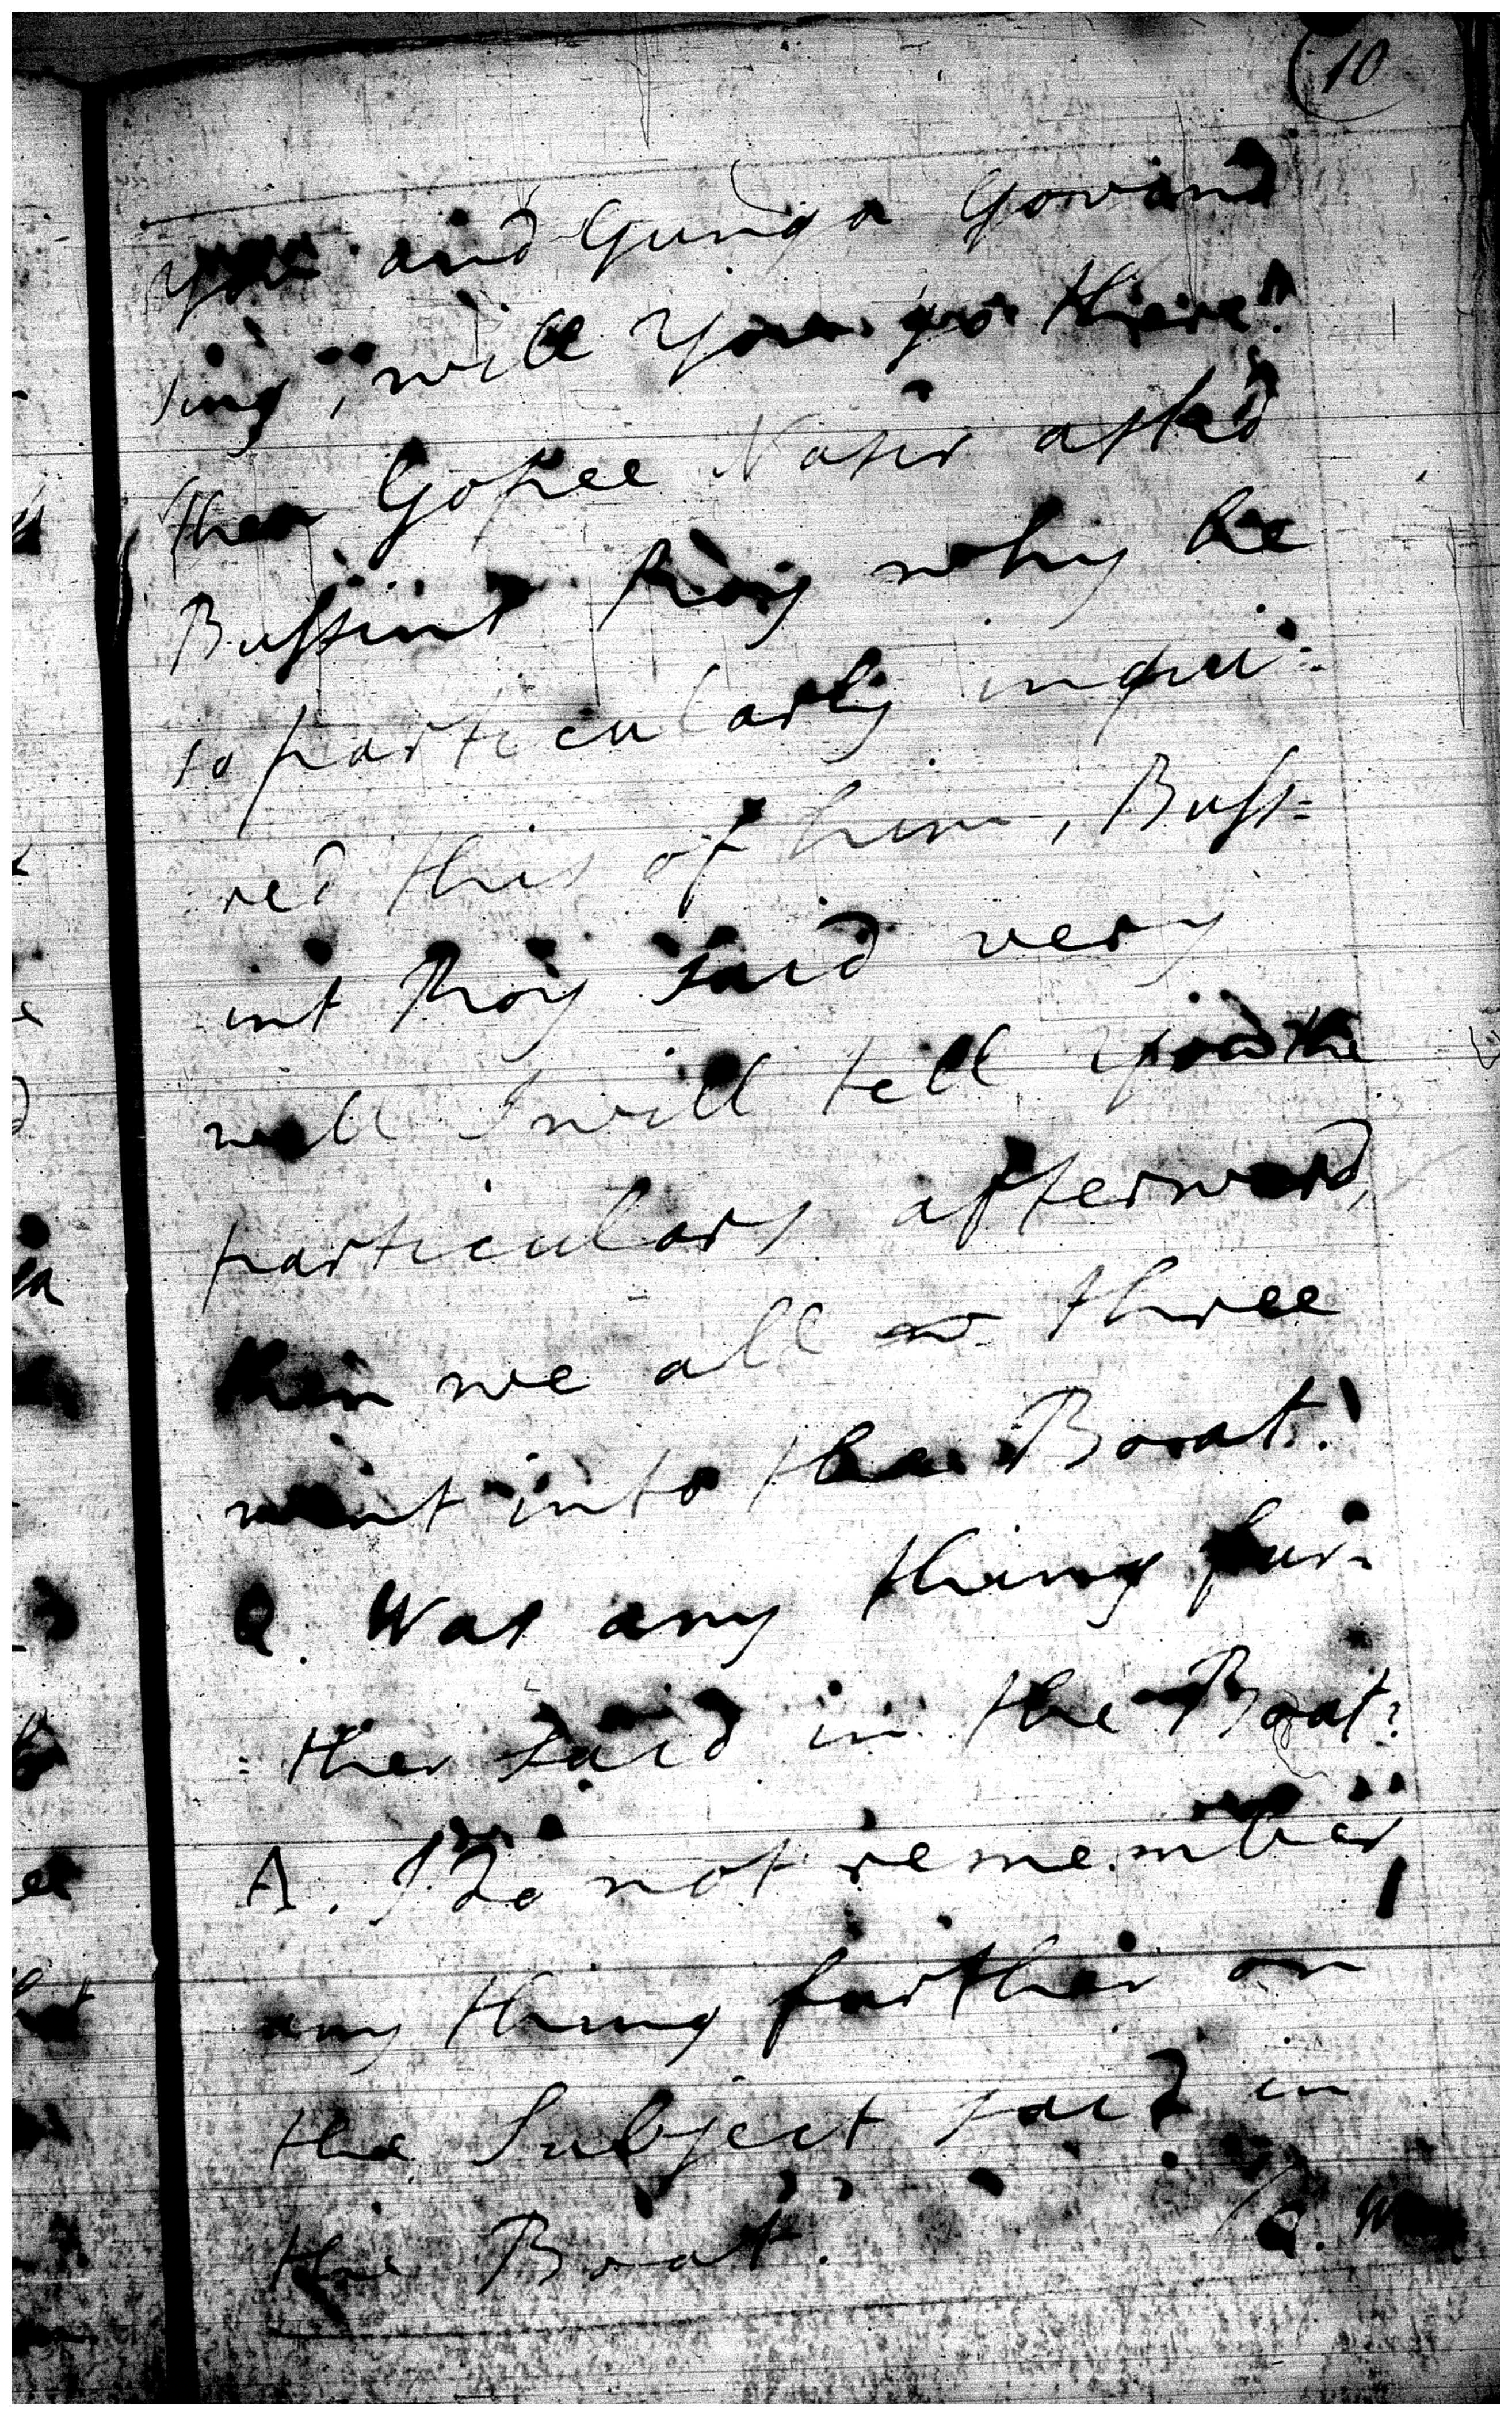 (10
you and Gunga Govind
sing, will you go there"
then Gopee Nasir ask'd
Bussint Roy why he
so particularly inqui:
red this of him, Buss=
int Roy said very
well I will tell you the
particulars afterward,
then we all three
went into the Boat.
Q. Was any thing fur=
:ther said in the Boat?
A. I do not remember
any thing further on
the Subject said in
the Boat.
Q.